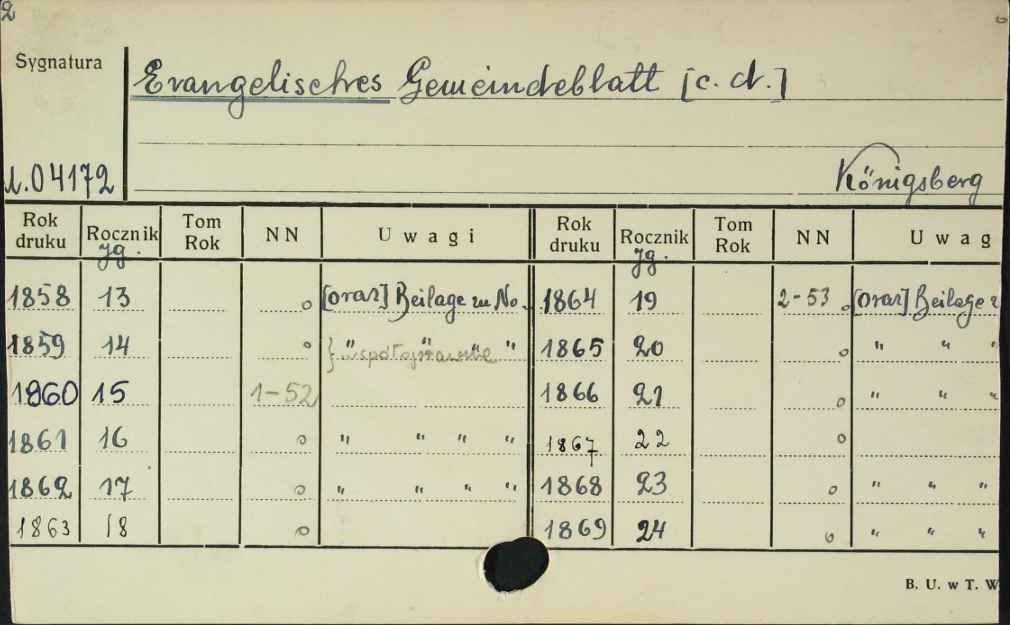 2
Sygnatura
Evangelisches Gemeindeblatt [c. d.]
04172
Königsberg
Rok druku Rocznik Jg. Tom Rok NN Uwagi Rok druku Rocznik Jg. Tom Rok NN Uwag
1858 13 o [oraz] Beilage zu No. 1864 19 2-53 o [oraz] Beilage z
1859 14 o } " " " " 1865 20 o " " "
1860 15 1-52 1866 21 o " " "
1861 16 o " " " " 1867 22 o
1862 17 o " " " " 1868 23 o " " "
1863 18 o 1869 24 o " " "
B. U. w T. W